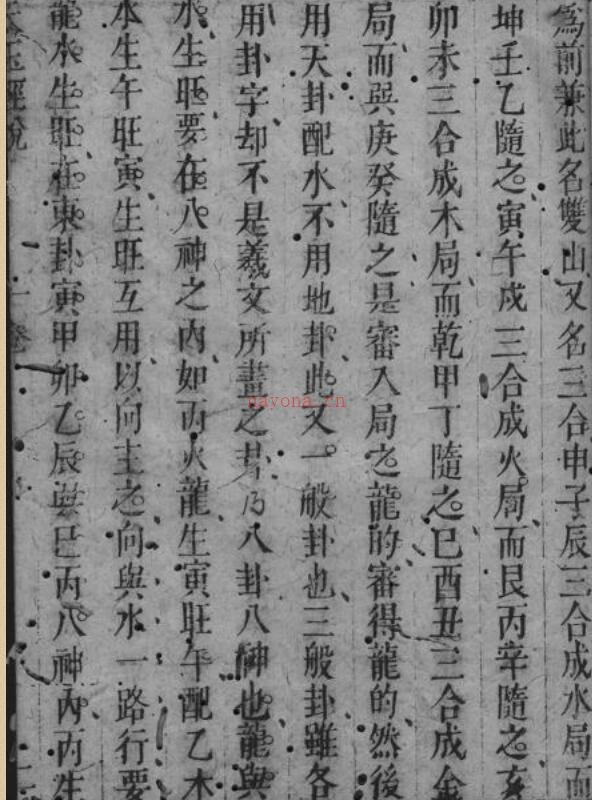 為前兼此名雙山又名三合申子辰三合成水局而
坤壬乙隨之寅午戌三合成火局而艮丙辛隨之亥
卯未三合成木局而乾甲丁隨之巳酉丑三合成金
局而巽庚癸隨之是審入局之龍的審得龍的然後
用天卦配水不用地卦此又一般卦也三般卦雖各
用卦字却不是羲文所畫之卦乃八卦八神也龍與
水生旺要在八神之內如丙火龍生寅旺午配乙木
水生午旺寅生旺互用以向主之向與水一路行要
龍水生旺在東卦寅甲卯乙辰巽巳丙八神內丙生
玉經說
卷
nayona.cn